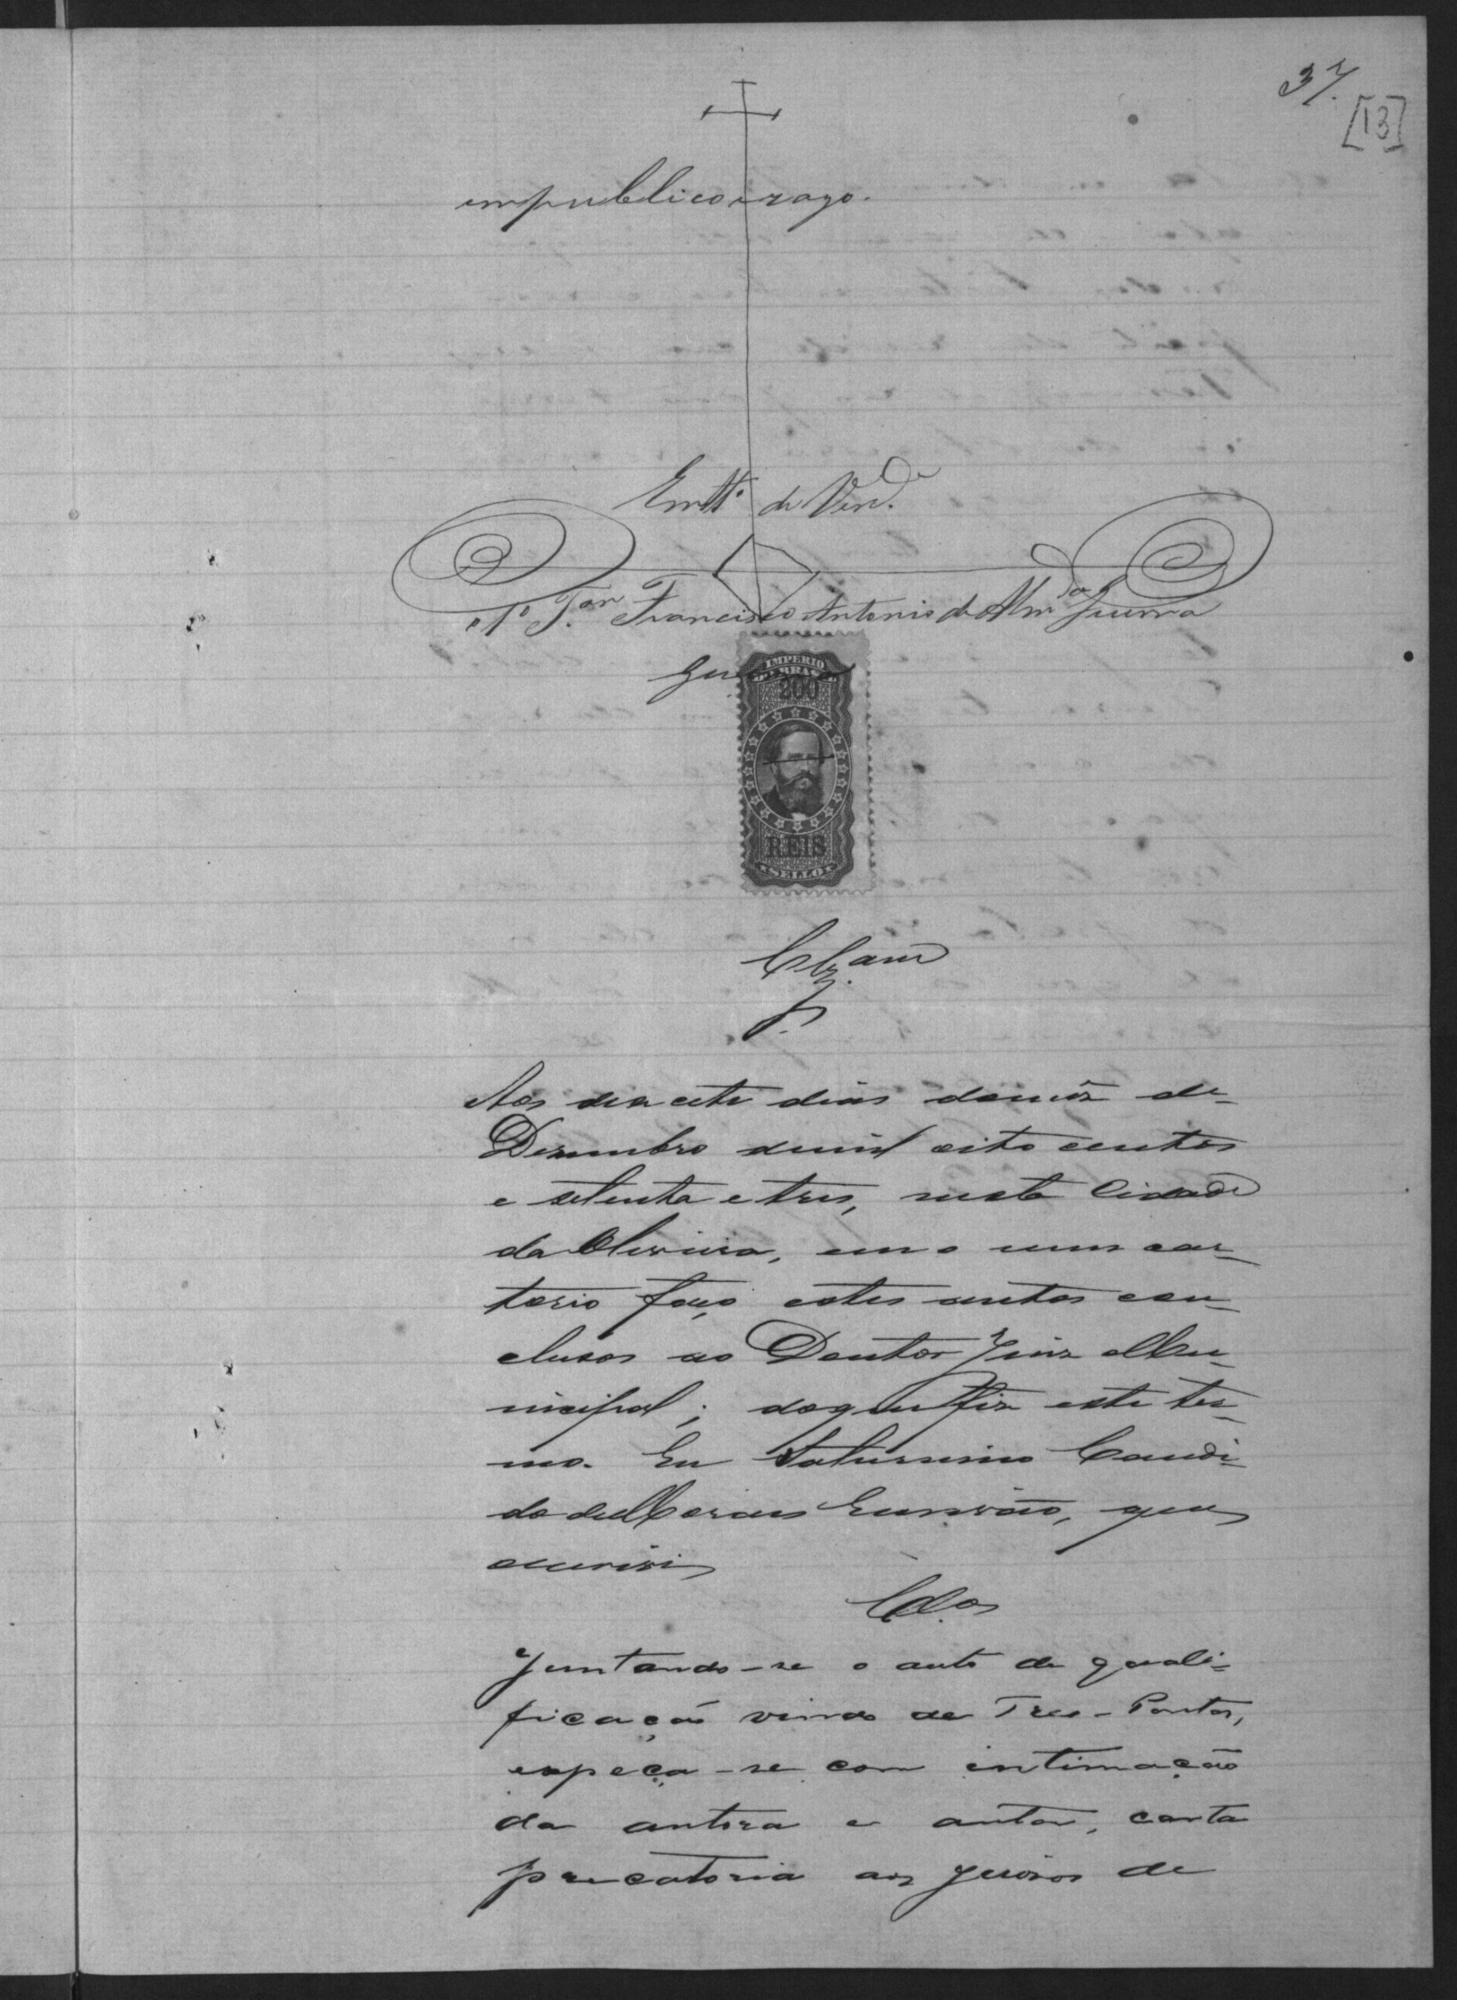 37.
[13]
em publico e razo.
Em tt.º de Verd.e
1º T.am Francisco Antonio de Alm.da Guerra
IMPERIO
DO BRASIL
200
REIS
SELLO
Clzam
Aos desacete dias do mêz de
Dezembro de mil oito centos
e setenta e tres, nesta Cidade
da Oliveira, em o meu car-
torio faço estes autos con-
clusos ao Doutor Juiz Mu-
nicipal; do que fiz este ter-
mo. Eu Saturnino Candi-
do de Moraes Escrivão, que
escrevi
Cl.os
Juntando-se o auto de quali-
ficação vindo de Tres-Pontas,
expeça-se com intimação
da autora e autor, carta
precatoria aos juisos de